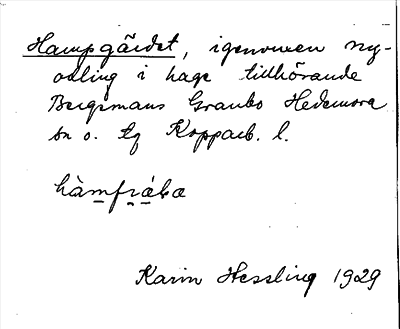 Hampgärdet, igenvuxen ny-
odling i hage tillhörande
Bergsmans Graubo Hedemora
sn o. tg Kopparb. l.
hàmfrába
Karin Hessling 1929